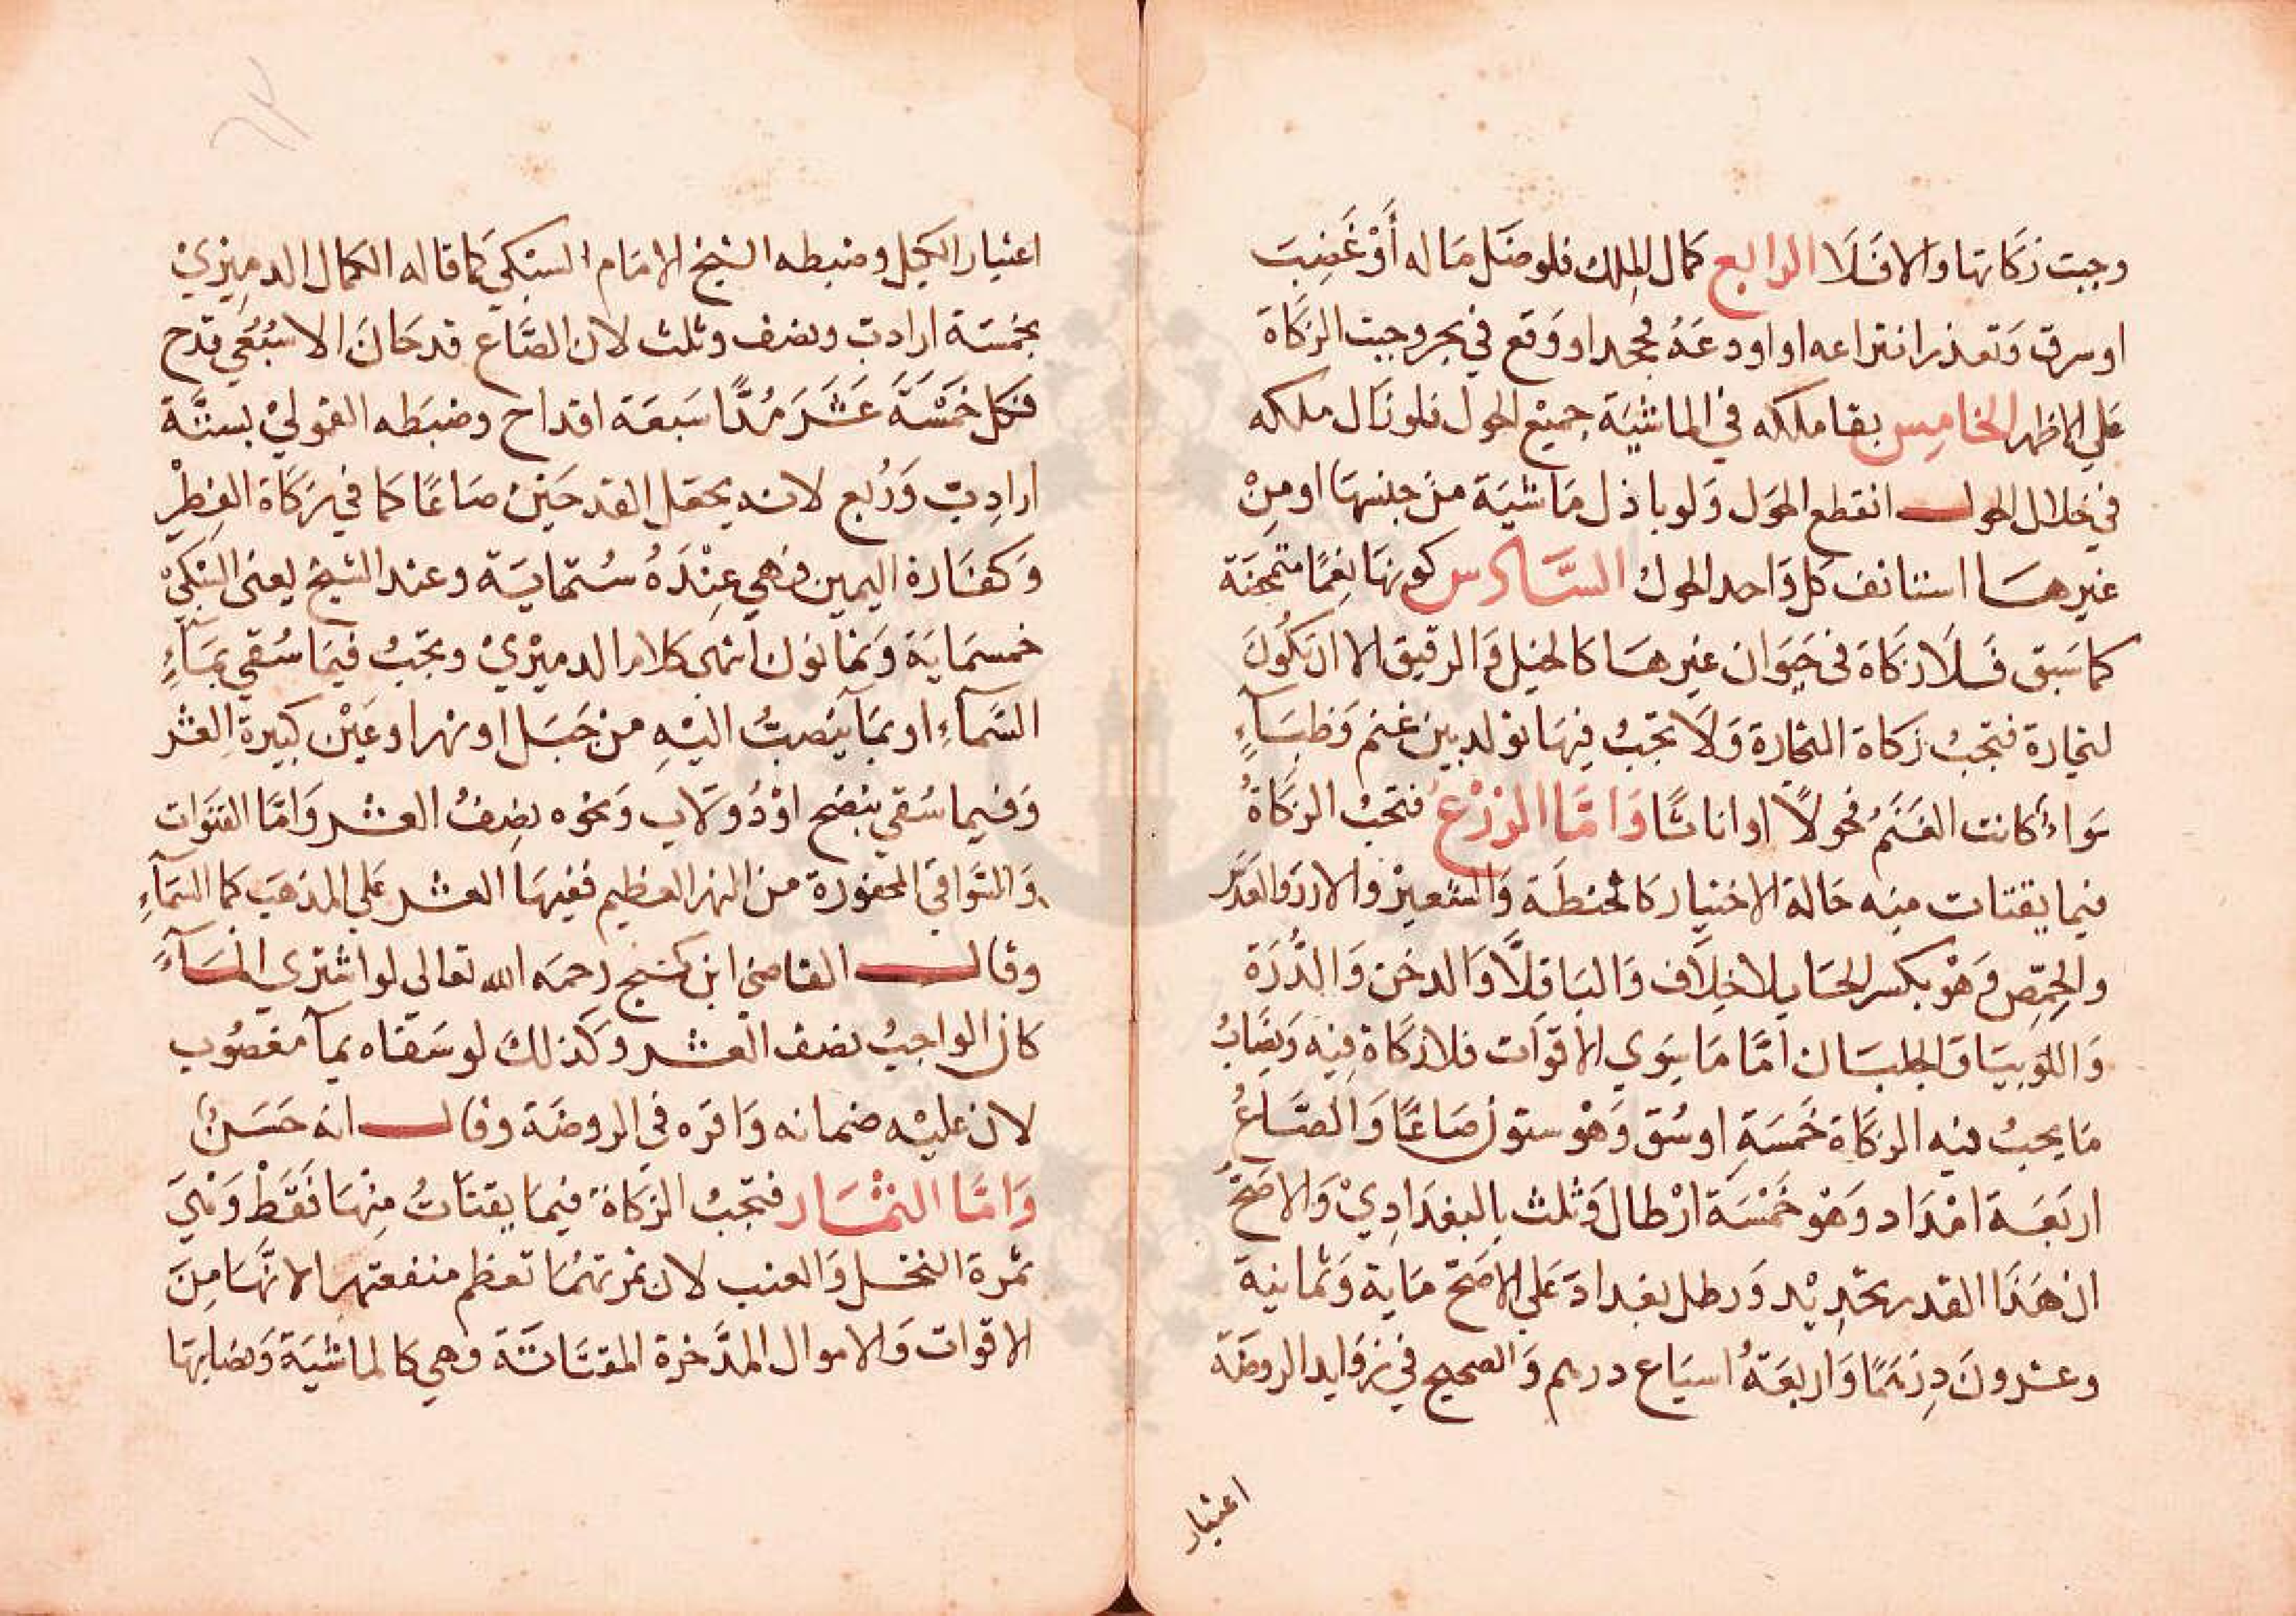 وجبت زكاتها والا فَلَا الرابع كمال المِلك فلو ضَل مَاله أوْ غُصِبَ
او سرق وَتعذر انتزاعه او اودعَهُ فجحد او وَقع في بحر وجبت الزكَاة
عَلي الاظهر الخامِس بقا ملكه في الماشيَة جميْع الحول فلو زال ملكه
في خلال الحول انقطع الحَول وَلو باذل مَاشيَة منْ جنسهَا او مِنْ
غيرهَا استانف كل وَاحد الحول السَّادس كونهَا نعَمًا متمحضة
كما سَبق فَلَا زكَاة في حيَوان غيرهَا كالخيل وَالرقيق الا ان تكُونَ
لتجارة فتجبُ زكاة التجارة وَلَا تجبُ فيهَا تولد بين غنم وَظبَآءٍ
سَواءً كانت الغنَمُ فحولًا او اناثًا وَامَّا الزرْعُ فتجبُ الزكَاةُ
فيما يقتات منه حَالة الاختيار كالحنطَة وَالشعيرْ والارز وَالعدَس
والحِمّص وَهْو بكسر الحَا بلا خِلَاف وَالبَاقلَّا وَالدخن وَالذُّرَة
وَاللوبيَا وَالجلبَان امَّا مَا سِوَي الاقوَات فلا زكَاة فِيه وَنِصَابُ
مَا يجبُ فيه الزكَاة خَمسَة اوسُق وَهْو ستون صَاعًا وَالصَّاعُ
اربَعَة امْدَاد وَهْو خَمْسَة ارْطال وَثلث بالبغدَادِيْ وَالاصَحُّ
ان هَذا القدر تحْدِيْد وَرطل بغداد عَلي الاصَحّ مَاية وَثمانية
وعشرونَ دِرهَمًا وَاربعَةُ اسبَاع درهم وَالصحيح في زوَايد الروضَة
اعتبار
اعتبار الكيل وضبطه الشيخ الامَام السبْكي كما قاله الكمال الدمِيْريْ
بخمسَة ارادبّ ونصف وثلث لان الصَّاع قدحَانَ الا سُبُعَي قدح
فكل خَمْسَةَ عَشَرَ مُدًّا سَبعَة اقداح وضبَطه القمولِيْ بستَّة
ارادِبّ وَرُبع لانه يجعَل القدحَيْن صَاعًا كما في زكَاة الفِطْرِ
وَكفَارة اليمين فهي عِنْدَهُ سُتمايَة وعند الشيخ يعني السبْكيْ
خمسمَايَة وَثمانون انتهي كلام الدميْريْ وتجبُ فيمَا سُقي بمَآءِ
السَّمآءِ او بمَا ينصبُّ اليْهِ من جَبَل او نهر او عَيْن كبيرة العشر
وَفيما سُقي بنضح اوْ دُولَاب وَنحوه نِصفُ العشر وَامَّا القنَوَات
وَالسَّوَاقي المحفورة منَ النهر العَظيم ففيهَا العشر عَلي المذهَب كمَا السَّمآءِ
وقال القاضي ابن كج رحمَه الله تعالي لو اشتري المَآءَ
كان الواجبُ نصف العشر وَكَذلك لو سَقاه بمآ مغصُوب
لان عليْه ضمانه وَاقره في الروضَة وقال انه حَسَنٌ
وَامَّا الثمَار فتجبُ الزكَاة فيما يقتَاتُ مِنْهَا فقَطْ وَهْيَ
ثمرة النخل وَالعنب لان ثمرتهمَا تعظم منفعتهم الانَّهَا مِنَ
الاقوات وَالاموال المدَّخرة المقتَاتَة وهي كالماشيَة وَنصابهَا